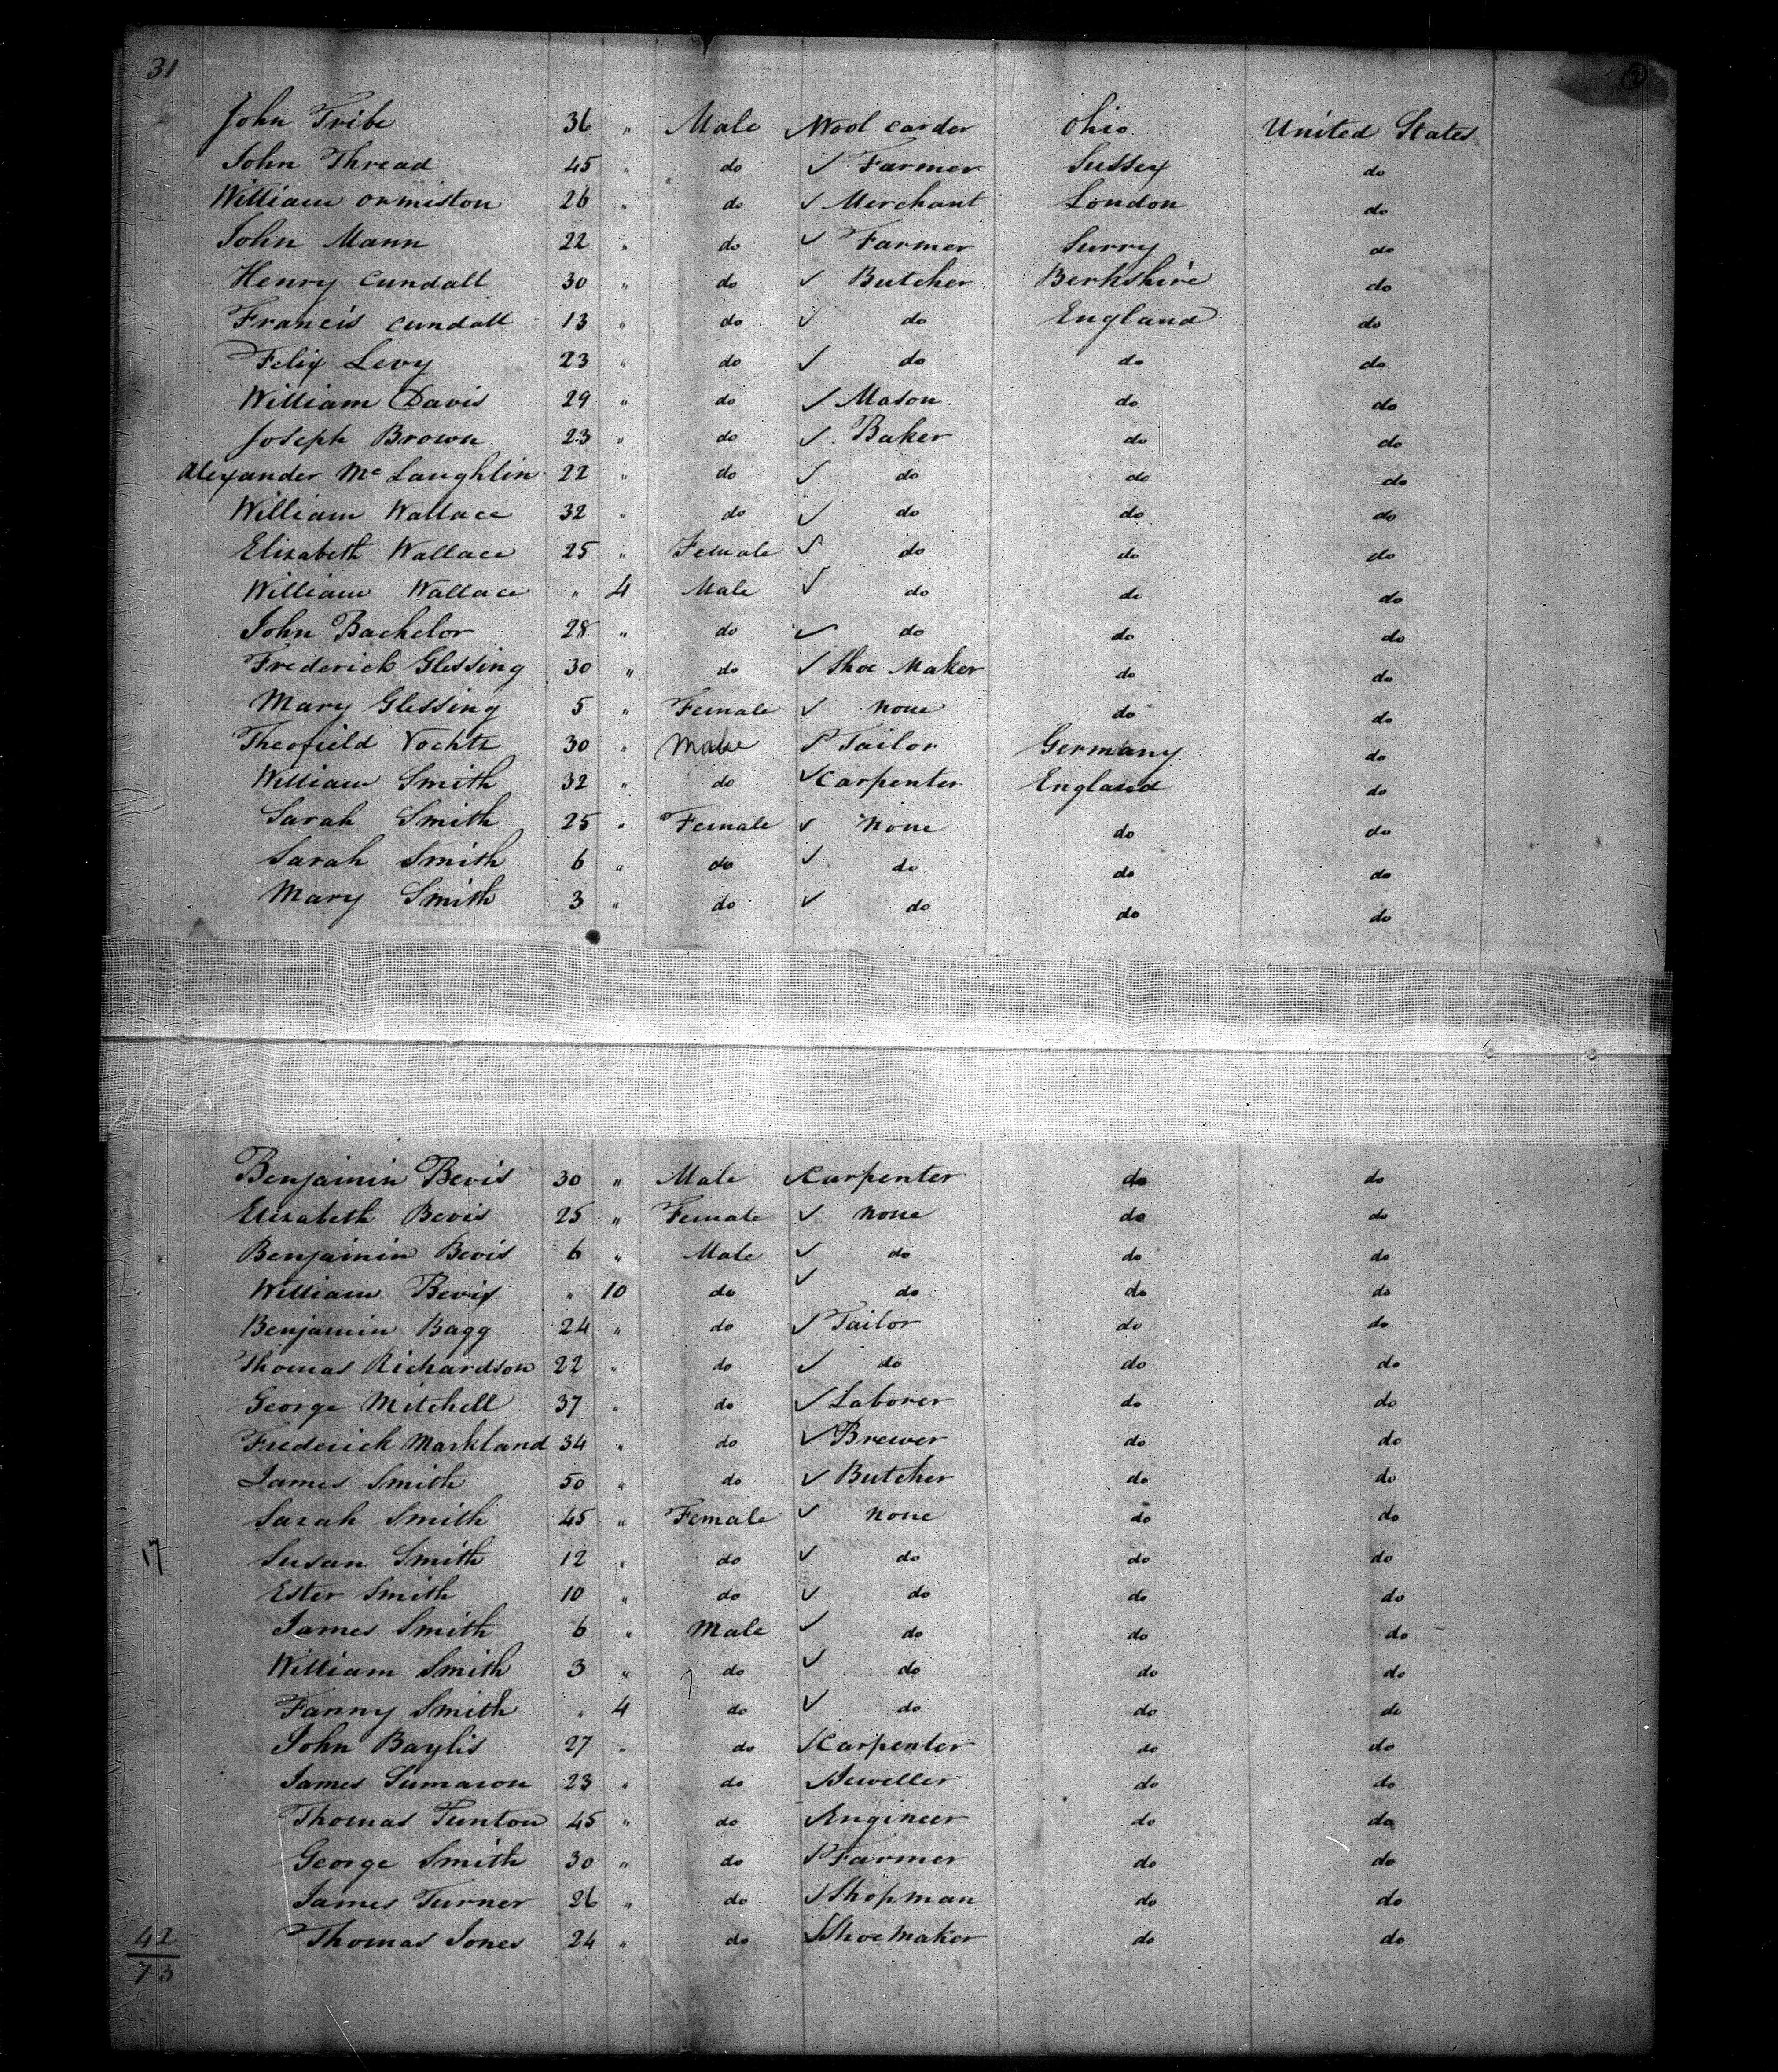 31 2
John Tribe 36 " Male ✓ Wool carder Ohio United States
John Thread 45 " do ✓ Farmer Sussex do
William Ormiston 26 " do ✓ Merchant London do
John Mann 22 " do ✓ Farmer Surry do
Henry Cundall 30 " do ✓ Butcher Berkshire do
Francis Cundall 13 " do ✓ do England do
Felix Levy 23 " do ✓ do do do
William Davis 29 " do ✓ Mason do do
Joseph Brown 23 " do ✓ Baker do do
Alexander Mc Laughlin 22 " do ✓ do do do
William Wallace 32 " do ✓ do do do
Elizabeth Wallace 25 " Female ✓ do do do
William Wallace " 4 Male ✓ do do do
John Bachelor 28 " do ✓ do do do
Frederick Glessing 30 " do ✓ Shoe Maker do do
Mary Glessing 5 " Female ✓ None do do
Theofield Vochtz 30 " Male ✓ Tailor Germany do
William Smith 32 " do ✓ Carpenter England do
Sarah Smith 25 " Female ✓ None do do
Sarah Smith 6 " do ✓ do do do
Mary Smith 3 " do ✓ do do do
Benjamin Bevis 30 " Male ✓ Carpenter do do
Elizabeth Bevis 25 " Female ✓ None do do
Benjamin Bevis 6 " Male ✓ do do do
William Bevis " 10 do ✓ do do do
Benjamin Bagg 24 " do ✓ Tailor do do
Thomas Richardson 22 " do ✓ do do do
George Mitchell 37 " do ✓ Laborer do do
Frederick Markland 34 " do ✓ Brewer do do
James Smith 50 " do ✓ Butcher do do
Sarah Smith 45 " Female ✓ None do do
17 Susan Smith 12 " do ✓ do do do
Ester Smith 10 " do ✓ do do do
James Smith 6 " Male ✓ do do do
William Smith 3 " do ✓ do do do
Fanny Smith " 4 do ✓ do do do
John Baylis 27 " do ✓ Carpenter do do
James 23 " do ✓ Jeweller do do
Thomas 45 " do ✓ Engineer do do
George Smith 30 " do ✓ Farmer do do
James Turner 26 " do ✓ Shopman do do
42 Thomas Jones 24 " do ✓ Shoemaker do do
73